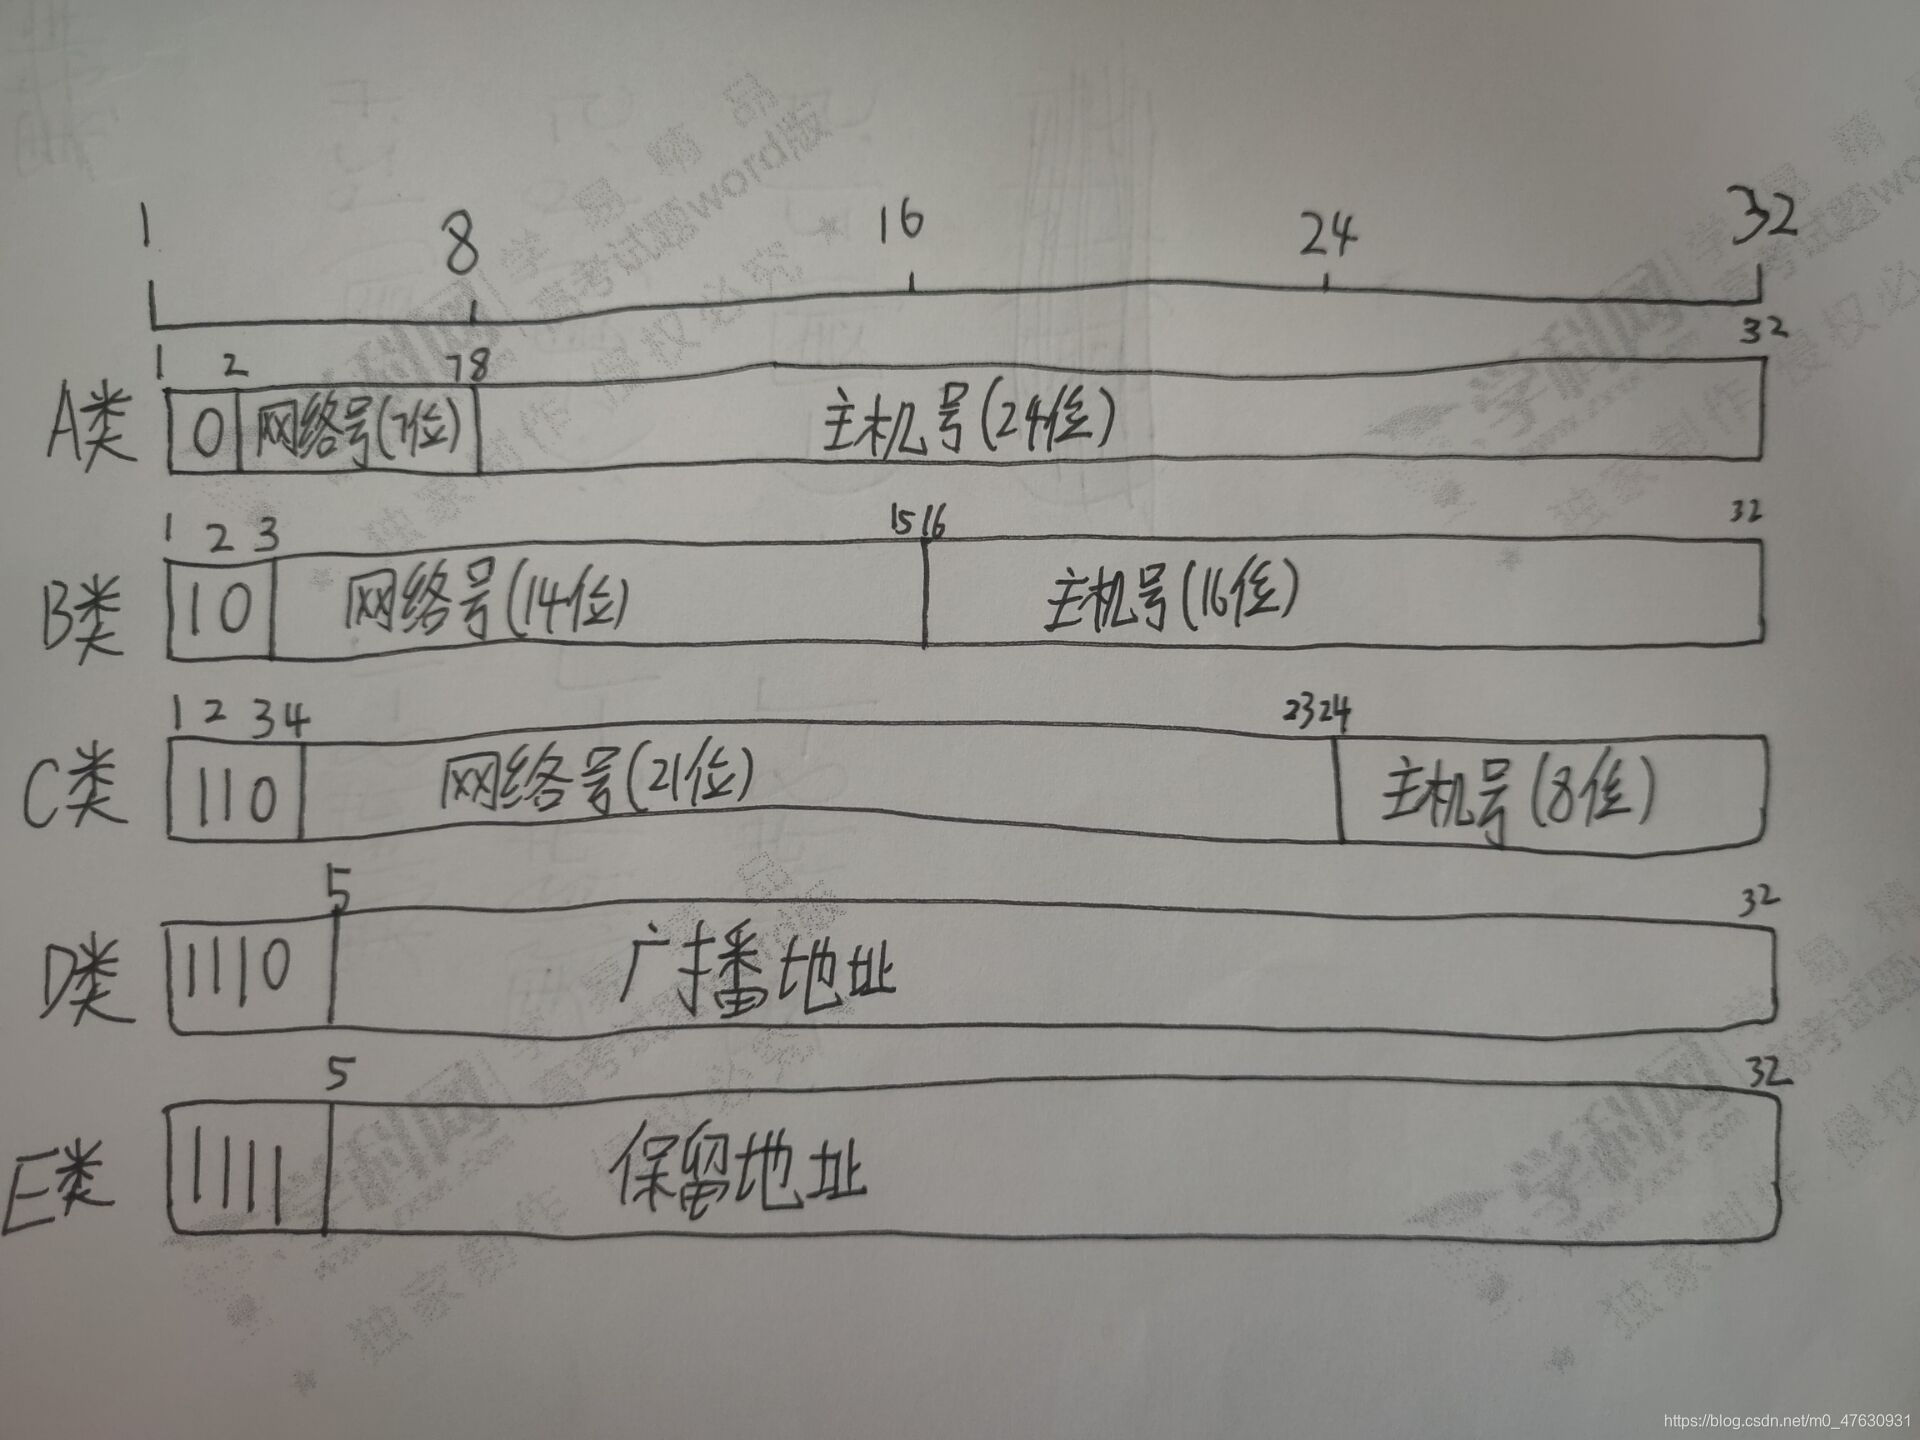 1 8 16 24 32
1 2 78 32
A类 0 网络号(7位) 主机号(24位)
1 2 3 1516 32
B类 10 网络号(14位) 主机号(16位)
1 2 34 2324
C类 110 网络号(21位) 主机号(8位)
5 32
D类 1110 广播地址
5 32
E类 1111 保留地址
https://blog.csdn.net/m0_47630931